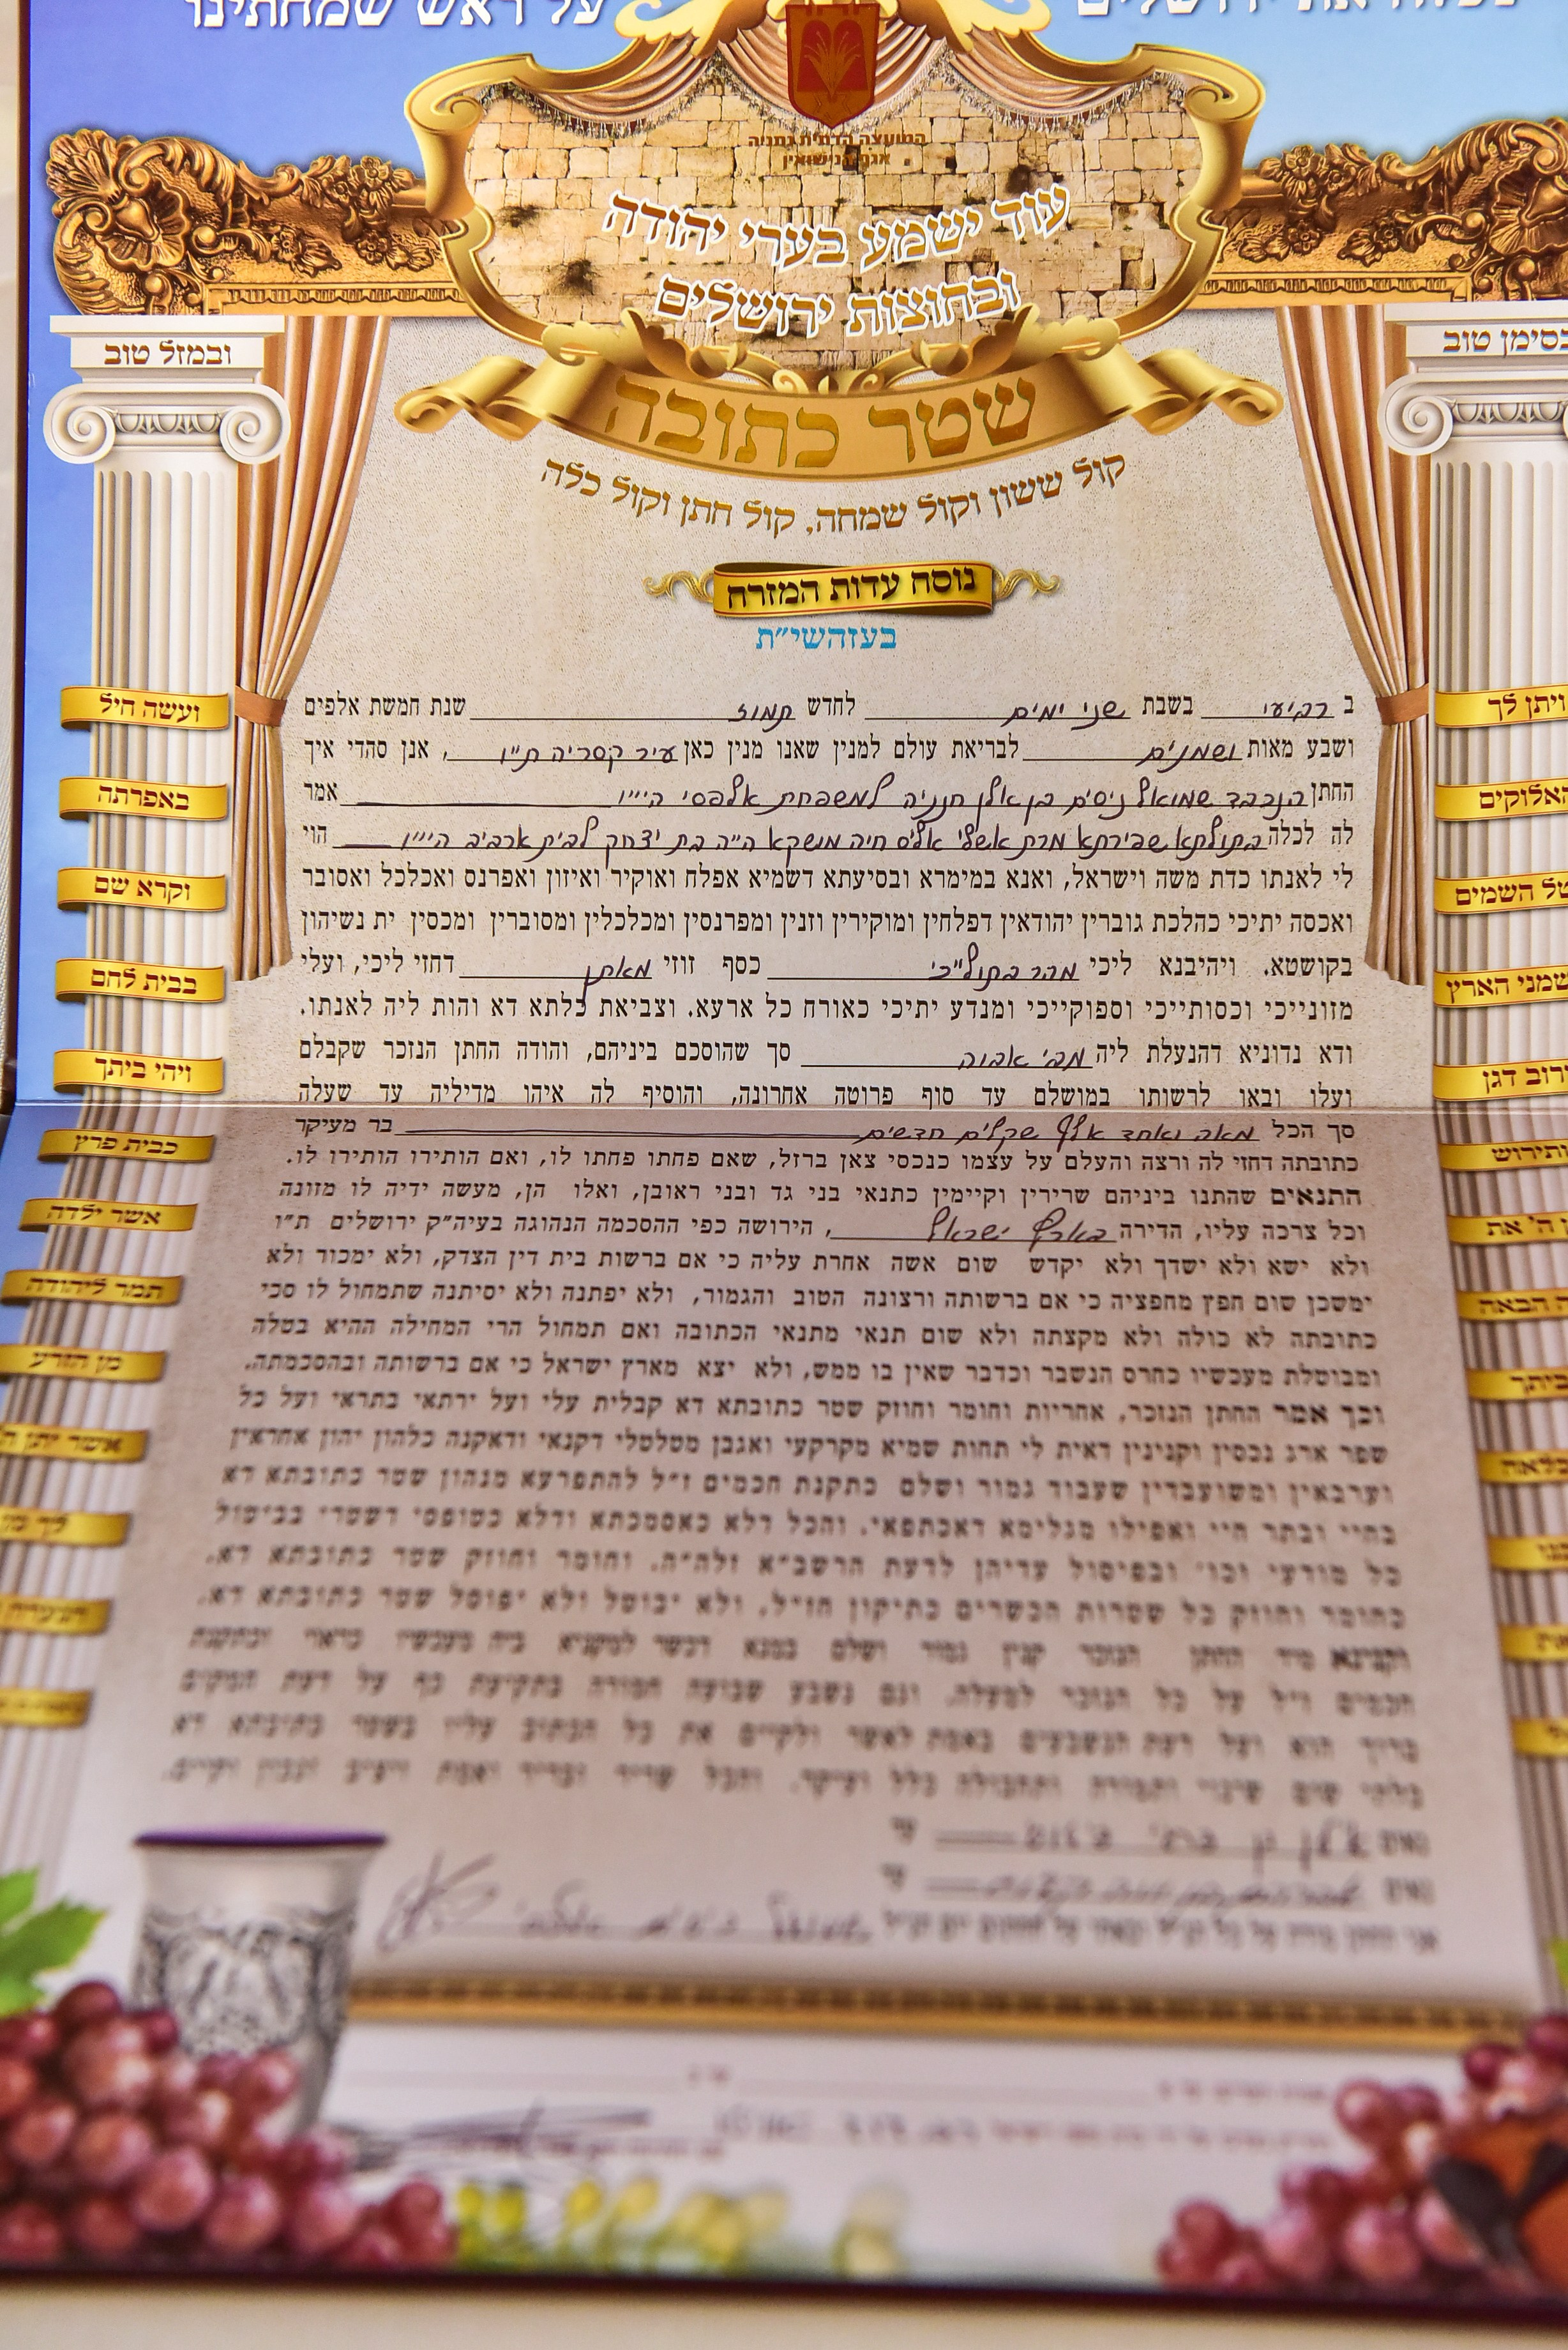 על ראש שמחתינו
המועצה הדתית נתניה
אגף הנישואין
עוד ישמע בערי יהודה
ובחוצות ירושלים
ובמזל טוב
בסימן טוב
שטר כתובה
קול ששון וקול שמחה, קול חתן וקול כלה
נוסח עדות המזרח
בעזהשי״ת
ב רביעי בשבת שני ימים לחדש תמוז שנת חמשת אלפים
ושבע מאות ושמנים לבריאת עולם למנין שאנו מנין כאן עיר קסריה ת״ו, אנן סהדי איך
החתן הנכבד שמואל ניסים בן אלן חנניה למשפחת אלפסי הי״ו אמר
לה לכלה בתולתא שפירתא מרת אשלי אליס חיה מושקא ה״ה בת יצחק לבית ארביב הי״ו הוי
לי לאנתו כדת משה וישראל, ואנא במימרא ובסיעתא דשמיא אפלח ואוקיר ואיזון ואפרנס ואכלכל ואסובר
ואכסה יתיכי כהלכת גוברין יהודאין דפלחין ומוקירין וזנין ומפרנסין ומכלכלין ומסוברין ומכסין ית נשיהון
בקושטא. ויהיבנא ליכי מהר בתול״כי כסף זוזי מאתן דחזי ליכי, ועלי
מזונייכי וכסותייכי וספוקייכי ומנדע יתיכי כאורח כל ארעא. וצביאת כלתא דא והות ליה לאנתו.
ודא נדוניא דהנעלת ליה מבי אבוה סך שהוסכם ביניהם, והודה החתן הנזכר שקבלם
ועלו ובאו לרשותו במושלם עד סוף פרוטה אחרונה, והוסיף לה איהו מדיליה עד שעלה
סך הכל מאה ואחד אלף שקלים חדשים בר מעיקר
כתובתה דחזי לה ורצה והעלם על עצמו כנכסי צאן ברזל, שאם פחתו פחתו לו, ואם הותירו הותירו לו.
התנאים שהתנו ביניהם שרירין וקיימין כתנאי בני גד ובני ראובן, ואלו הן, מעשה ידיה לו מזונה
וכל צרכה עליו, הדירה בארץ ישראל, הירושה כפי ההסכמה הנהוגה בעיה״ק ירושלים ת״ו
ולא ישא ולא ישדך ולא יקדש שום אשה אחרת עליה כי אם ברשות בית דין הצדק, ולא ימכור ולא
ימשכן שום חפץ מחפציה כי אם ברשותה ורצונה הטוב והגמור, ולא יפתנה ולא יסיתנה שתמחול לו סכי
כתובתה לא כולה ולא מקצתה ולא שום תנאי מתנאי הכתובה ואם תמחול הרי המחילה ההיא בטלה
ומבוטלת מעכשיו כחרס הנשבר וכדבר שאין בו ממש, ולא יצא מארץ ישראל כי אם ברשותה ובהסכמתה.
וכך אמר החתן הנזכר, אחריות וחומר וחוזק שטר כתובתא דא קבלית עלי ועל ירתאי בתראי ועל כל
שפר ארג נכסין וקנינין דאית לי תחות שמיא מקרקעי ואגבן מטלטלי דקנאי ודאקנה כלהון יהון אחראין
וערבאין ומשועבדין שעבוד גמור ושלם כתקנת חכמים ז״ל להתפרעא מנהון שטר כתובתא דא
בחיי ובתר חיי ואפילו מגלימא דאכתפאי. והכל דלא כאסמכתא ודלא כטופסי דשטרי בביטול
כל מודעי וכו׳ ובפיסול עדיהן לדעת הרשב״א זלה״ה. וחומר וחוזק שטר כתובתא דא.
כחומר וחוזק כל שטרות הכשרים כתיקון חז״ל. ולא יבוטל ולא יפוסל שטר כתובתא דא.
וקנינא מיד החתן הנזכר קנין גמור ושלם במנא דכשר למקניא ביה מעכשיו
חכמים ז״ל על כל הנזכר למעלה. וגם נשבע שבועה חמורה בתקיעת כף על דעת המקום
ברוך הוא ועל דעת הנשבעים באמת לאשר ולקיים את כל הכתוב עליו בשטר כתובתא דא
בלתי שום שינוי ותמורה ותחבולה כלל ועיקר. והכל שריר ובריר ואמת ויציב ונכון וקיים.
נאום עד
נאום עד
ועשה חיל
באפרתה
וקרא שם
בבית לחם
ויהי ביתך
כבית פרץ
אשר ילדה
תמר ליהודה
מן הזרע
אשר יתן
ויתן לך
האלוקים
מטל השמים
ומשמני הארץ
ורוב דגן
ותירוש